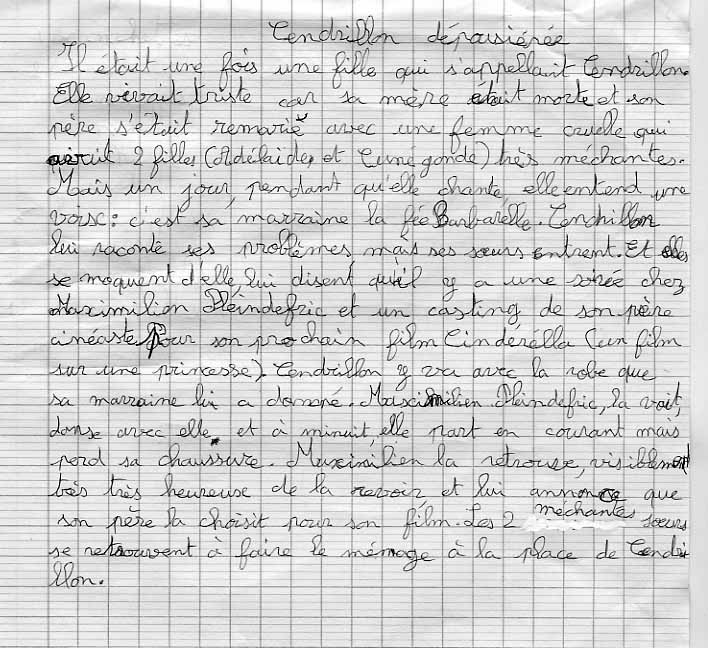 Cendrillon dépousiérée
Il était une fois une fille qui s'appellait Cendrillon.
Elle vivait triste car sa mère était morte et son
père s'était remarié avec une femme cruelle qui
avait 2 filles (Adélaïde, et Cunégonde) très méchantes.
Mais un jour, pendant qu'elle chante, elle entend une
voix : c'est sa marraine la fée Barbarelle. Cendrillon
lui raconte ses problèmes, mais ses sœurs entrent. Et elles
se moquent d'elle, lui disent qu'il y a une soirée chez
Maximilien Pleindefric et un casting de son père
cinéaste pour son prochain film Cindérella (un film
sur une princesse). Cendrillon y va avec la robe que
sa marraine lui a donné. Maximilien Pleindefric, la voit,
danse avec elle, et à minuit, elle part en courant mais
perd sa chaussure. Maximilien la retrouve, visiblement
très très heureuse de la revoir, et lui annonce que
son père la choisit pour son film. Les 2 méchantes sœurs
se retrouvent à faire le ménage à la place de Cendri
llon.